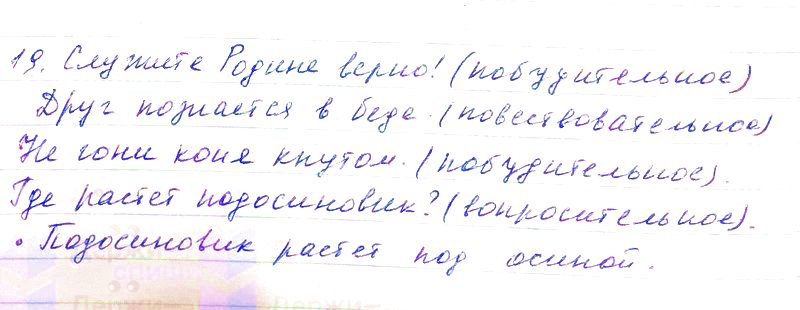 19. Служите Родине верно! (побудительное)
Друг познается в беде. (повествовательное)
Не гони коня кнутом. (побудительное).
Где растет подосиновик? (вопросительное).
• Подосиновик растет под осиной.